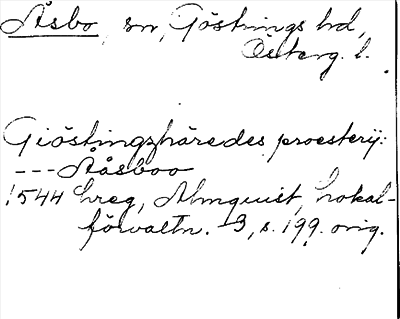 Åsbo, sn, Göstrings hd,
Österg. l.
Giöstingzhäredes proesterij:
--- Ååsboo
1544 hreg, Almquist, Lokal-
förvaltn. 3, s. 199. orig.